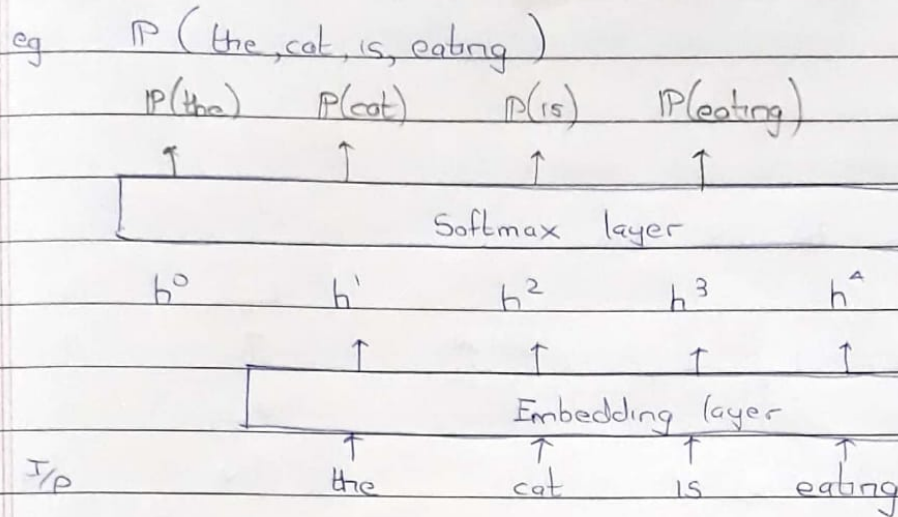 eg ℙ ( the, cat, is, eating )
ℙ(the) ℙ(cat) ℙ(is) ℙ(eating)
↑ ↑ ↑ ↑
Softmax layer
h⁰ h¹ h² h³ h⁴
↑ ↑ ↑ ↑
Embedding layer
↑ ↑ ↑ ↑
I/P the cat is eating